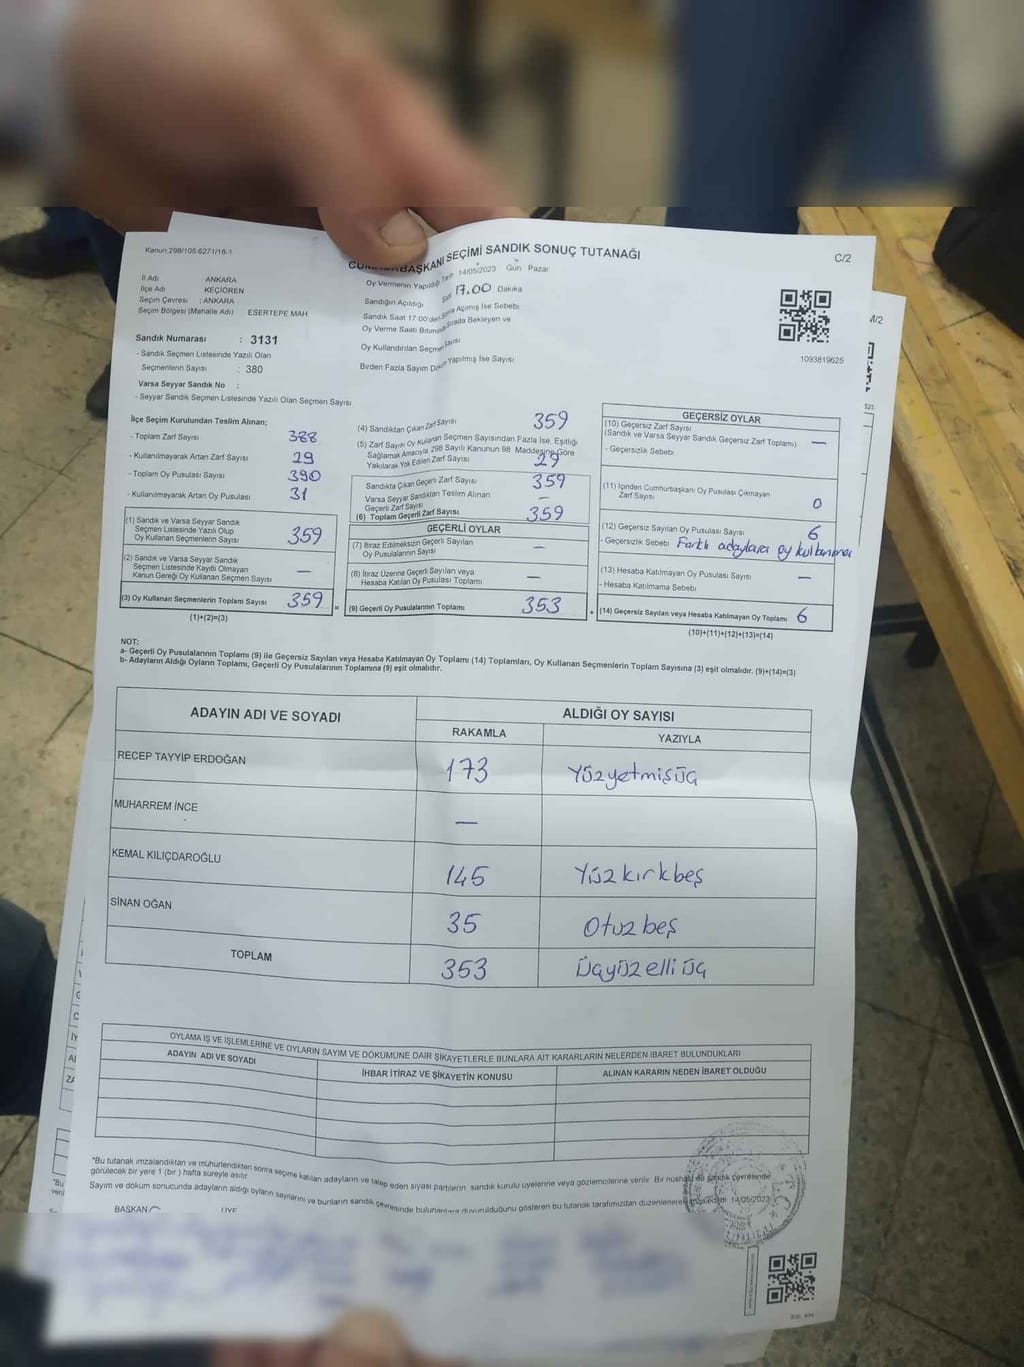 Kanun 298/105 6271/16-1
SEÇİMİ SANDIK SONUÇ TUTANAĞI
C/2
İl Adı ANKARA
İlçe Adı KEÇİÖREN
Seçim Çevresi : ANKARA
Seçim Bölgesi (Mahalle Adı) ESERTEPE MAH
Sandık Numarası : 3131
- Sandık Seçmen Listesinde Yazılı Olan
Seçmenlerin Sayısı : 380
Varsa Seyyar Sandık No :
- Seyyar Sandık Seçmen Listesinde Yazılı Olan Seçmen Sayısı
Oy Vermenin Yapıldığı Tarih 14/05/2023 Gün Pazar
Sandığın Açıldığı Saat 17.00 Dakika
Sandık Saat 17 00'den Sonra Açılmış İse Sebebi
Oy Verme Saati Bitiminde Sırada Bekleyen ve
Oy Kullandırılan Seçmen Sayısı
Birden Fazla Sayım Döküm Yapılmış İse Sayısı
1093819625
M/2
İlçe Seçim Kurulundan Teslim Alınan;
- Toplam Zarf Sayısı 388
- Kullanılmayarak Artan Zarf Sayısı 29
- Toplam Oy Pusulası Sayısı 390
- Kullanılmayarak Artan Oy Pusulası 31
(1) Sandık ve Varsa Seyyar Sandık
Seçmen Listesinde Yazılı Olup
Oy Kullanan Seçmenlerin Sayısı 359
(2) Sandık ve Varsa Seyyar Sandık
Seçmen Listesinde Kayıtlı Olmayan
Kanun Gereği Oy Kullanan Seçmen Sayısı —
(3) Oy Kullanan Seçmenlerin Toplam Sayısı 359 =
(1)+(2)=(3)
(4) Sandıktan Çıkan Zarf Sayısı 359
(5) Zarf Sayısı Oy Kullanan Seçmen Sayısından Fazla İse, Eşitliği
Sağlamak Amacıyla 298 Sayılı Kanunun 98 Maddesine Göre
Yakılarak Yok Edilen Zarf Sayısı 29
Sandıkta Çıkan Geçerli Zarf Sayısı 359
Varsa Seyyar Sandıktan Teslim Alınan
Geçerli Zarf Sayısı —
(6) Toplam Geçerli Zarf Sayısı 359
GEÇERLİ OYLAR
(7) İtiraz Edilmeksizin Geçerli Sayılan
Oy Pusulalarının Sayısı —
(8) İtiraz Üzerine Geçerli Sayılan veya
Hesaba Katılan Oy Pusulası Toplamı —
(9) Geçerli Oy Pusulalarının Toplamı 353 +
GEÇERSİZ OYLAR
(10) Geçersiz Zarf Sayısı
(Sandık ve Varsa Seyyar Sandık Geçersiz Zarf Toplamı) —
- Geçersizlik Sebebi
(11) İçinden Cumhurbaşkanı Oy Pusulası Çıkmayan
Zarf Sayısı 0
(12) Geçersiz Sayılan Oy Pusulası Sayısı 6
- Geçersizlik Sebebi Farklı adaylara oy kullanma
(13) Hesaba Katılmayan Oy Pusulası Sayısı —
- Hesaba Katılmama Sebebi
(14) Geçersiz Sayılan veya Hesaba Katılmayan Oy Toplamı 6
(10)+(11)+(12)+(13)=(14)
NOT:
a- Geçerli Oy Pusulalarının Toplamı (9) ile Geçersiz Sayılan veya Hesaba Katılmayan Oy Toplamı (14) Toplamları, Oy Kullanan Seçmenlerin Toplam Sayısına (3) eşit olmalıdır. (9)+(14)=(3)
b- Adayların Aldığı Oyların Toplamı, Geçerli Oy Pusulalarının Toplamına (9) eşit olmalıdır.
ADAYIN ADI VE SOYADI
ALDIĞI OY SAYISI
RAKAMLA YAZIYLA
RECEP TAYYİP ERDOĞAN 173 Yüzyetmişüç
MUHARREM İNCE —
KEMAL KILIÇDAROĞLU 145 Yüzkırkbeş
SİNAN OĞAN 35 Otuzbeş
TOPLAM 353 Üçyüzelliüç
OYLAMA İŞ VE İŞLEMLERİNE VE OYLARIN SAYIM VE DÖKÜMÜNE DAİR ŞİKAYETLERLE BUNLARA AİT KARARLARIN NELERDEN İBARET BULUNDUKLARI
ADAYIN ADI VE SOYADI İHBAR İTİRAZ VE ŞİKAYETİN KONUSU ALINAN KARARIN NEDEN İBARET OLDUĞU
*Bu tutanak imzalandıktan ve mühürlendikten sonra seçime katılan adayların ve talep eden siyasi partilerin sandık kurulu üyelerine veya gözlemcilerine verilir. Bir nüshası da sandık çevresinde
görülecek bir yere 1 (bir) hafta süreyle asılır
Sayım ve döküm sonucunda adayların aldığı oyların sayılarını ve bunların sandık çevresinde bulunanlara duyurulduğunu gösteren bu tutanak tarafımızdan düzenlenerek 14/05/2023
BAŞKAN ÜYE